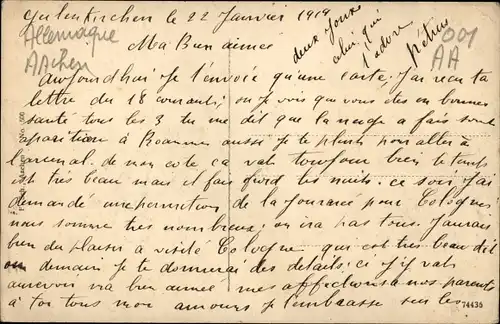 Geilenkirchen le 22 Janvier 1919
Allemagne
Aachen
001
AA
Ma Bien aimée
deux
celui qui
t'adore
Pétrus
Aujourdhui je t'envoie qu'une carte, j'ai reçu ta
lettre du 18 courant; ou je vois que vous etes en bonne
santé tous les 3 tu me dit que la neige a fais son
apparition à Roanne aussi je te plains pour aller à
l'arsenal. de mon coté ca va toujour bien le temps
est très beau mais il fais froid les nuits. ce soir j'ai
demandé une permition de la journée pour Cologne
nous somme tres nombreux; on ira pas tous. J'aurais
bien du plaisir a visité Cologne qui est très beau dit
on demain je te donnerai des details; si j'y vat
aurevoir ma bien aimée mes affections a nos parents
à toi tous mon amour je t'embrasse sur les
No. 600
74435